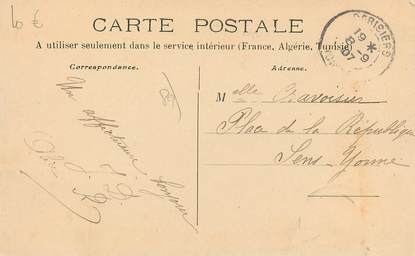 10 €
CARTE POSTALE
A utiliser seulement dans le service intérieur (France, Algérie, Tunisie)
Correspondance.
Adresse.
CERISIERS
19 -9
07
YONNE
Melle
Place de la République
Sens-Yonne
Un affectueux bonjour